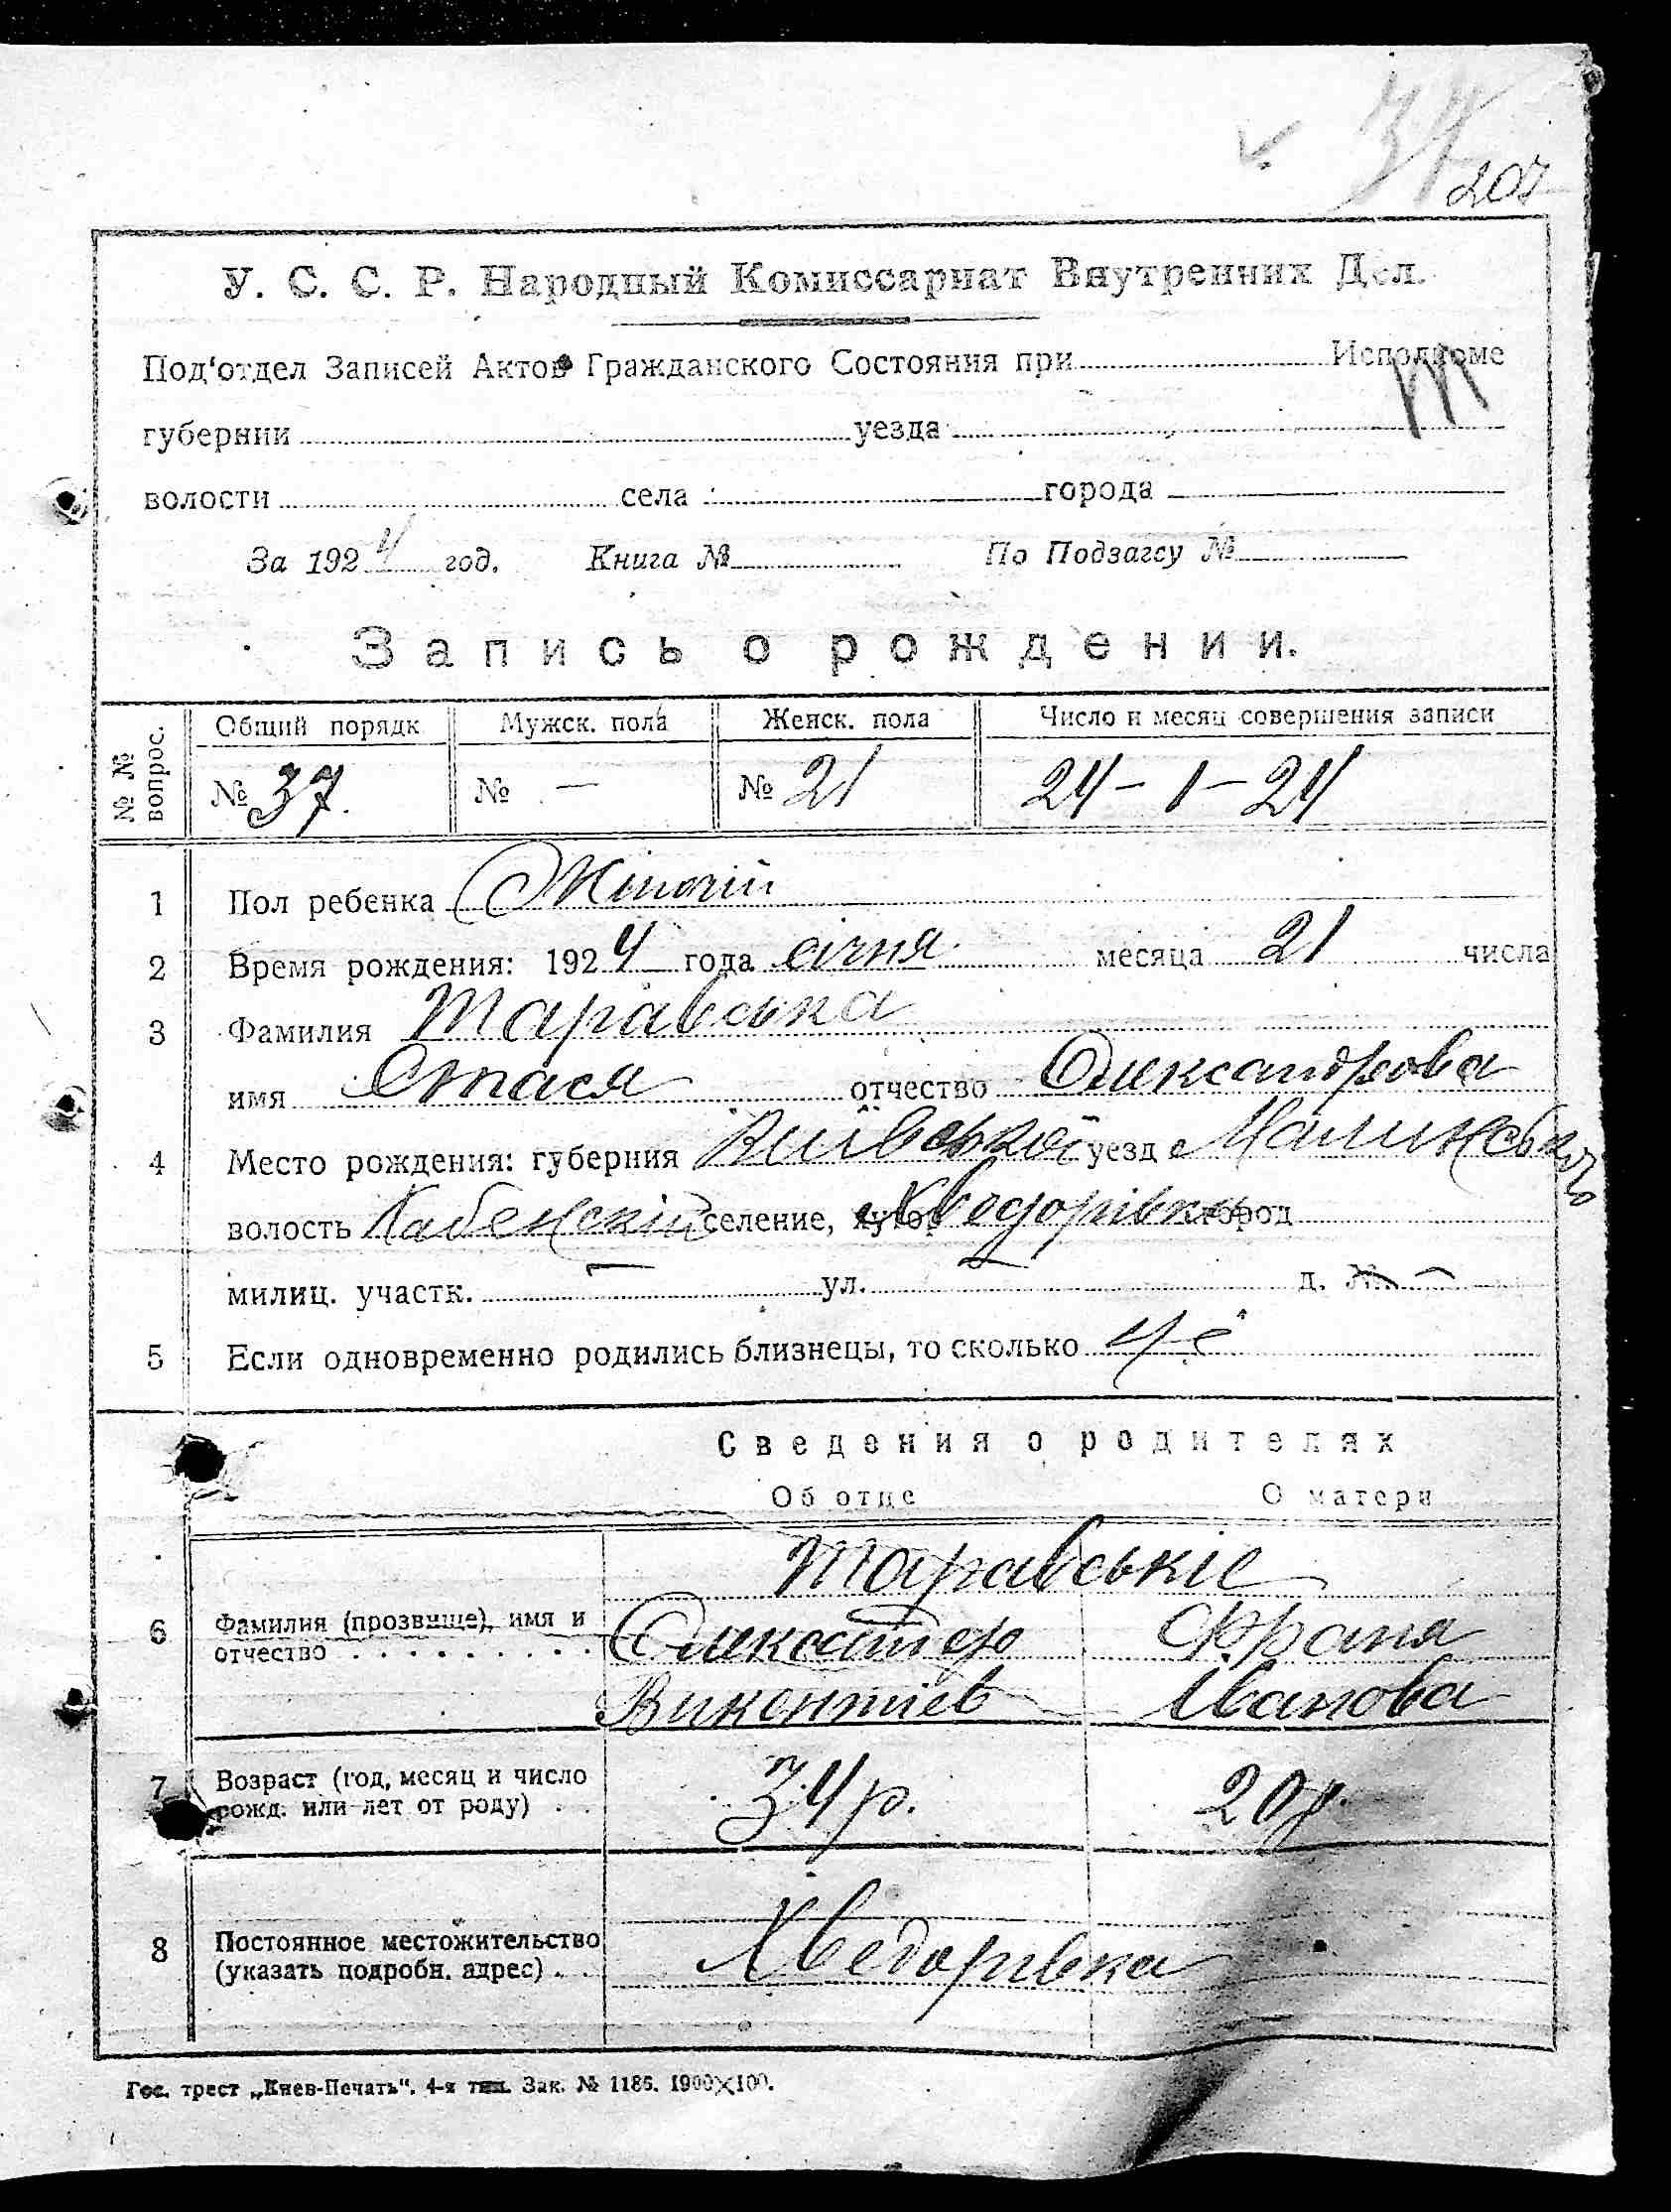 37
207
У. С. С. Р. Народный Комиссариат Внутренних Дел.
Под'отдел Записей Актов Гражданского Состояния при Исполкоме
губернии уезда
волости села города
За 1924 год. Книга № По Подзагсу №
Запись о рождении.
№ № вопрос. Общий порядк Мужск. пола Женск. пола Число и месяц совершения записи
№ 37. № — № 21 24 – 1 – 24
1 Пол ребенка Жіночій
2 Время рождения: 1924 года січня месяца 21 числа
3 Фамилия Таравська
имя Стася отчество Олександрова
4 Место рождения: губерния Київської уезд Малинсько
волость Хабенскій селение, хутор Хведорівка город
милиц. участк. — ул. — д. № —
5 Если одновременно родились близнецы, то сколько
Сведения о родителях
Об отце О матери
Таравськіе
6 Фамилия (прозвище), имя и отчество
Олександр Франя
Викентіев Іванова
7 Возраст (год, месяц и число рожд. или лет от роду) 34 р. 20 р.
8 Постоянное местожительство (указать подробн. адрес) Хведорівка
Гос. трест „Киев-Печать". 4-я тип. Зак. № 1186. 1900×100.